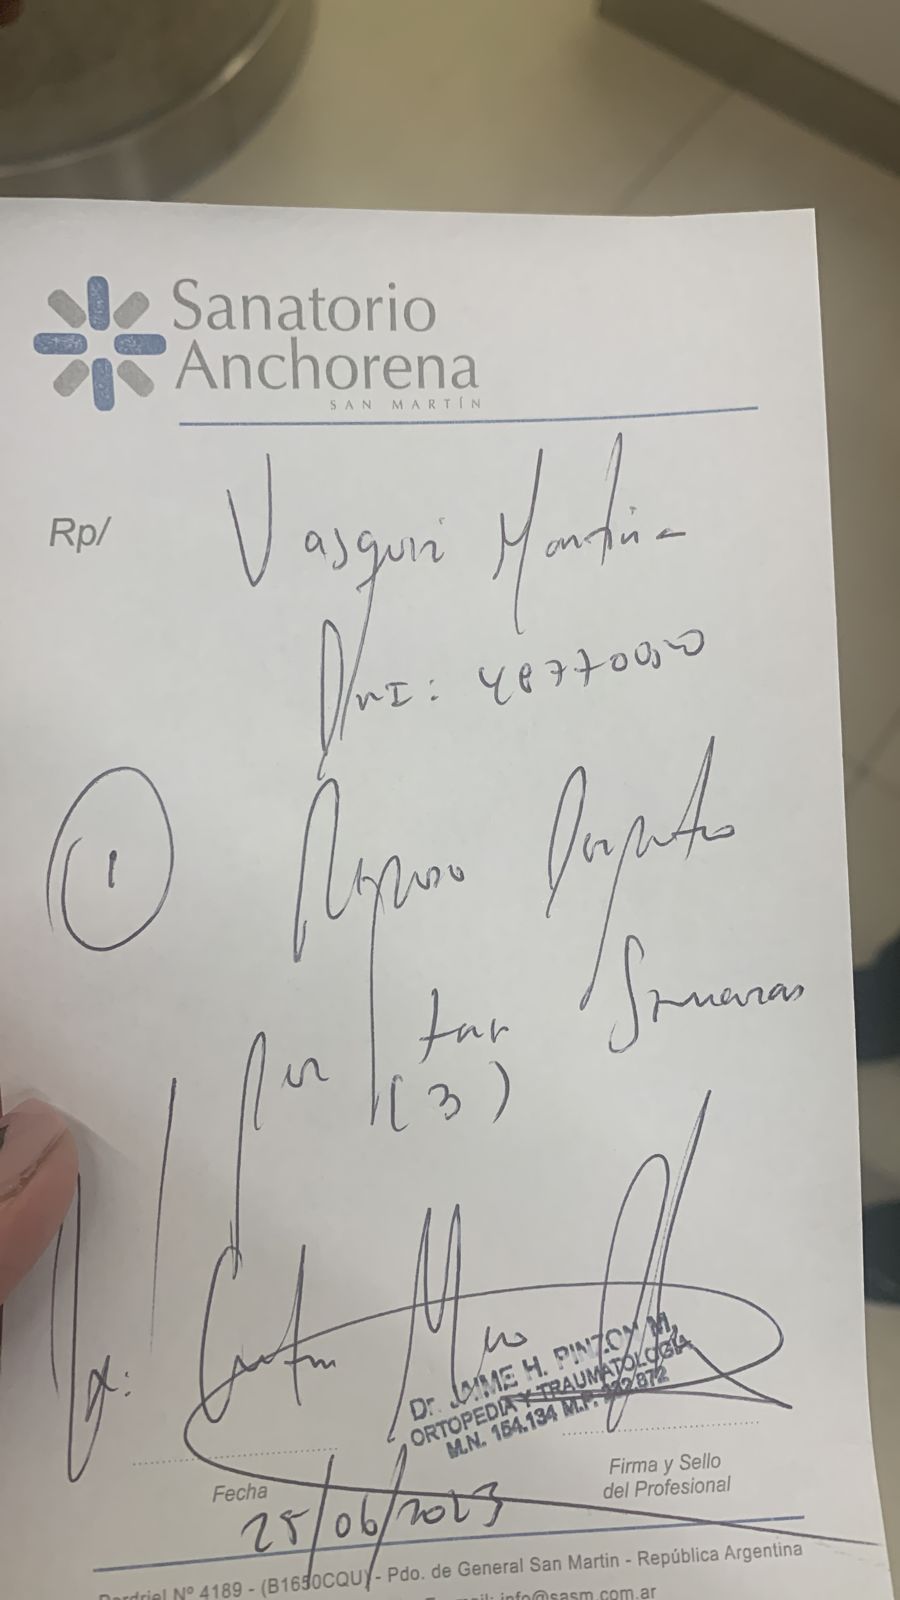 Sanatorio
Anchorena
SAN MARTÍN
Rp/
Vasquez Martina
DNI:
1
Reposo Deportivo
por tres Semanas
(3)
Dx:
Dr. JAIME H. PINZON M.
ORTOPEDIA Y TRAUMATOLOGÍA
M.N. 154.134 M.P.
Fecha
Firma y Sello
del Profesional
25/06/2023
Nº 4189 - (B1650CQU) - Pdo. de General San Martin - República Argentina
info@sasm.com.ar